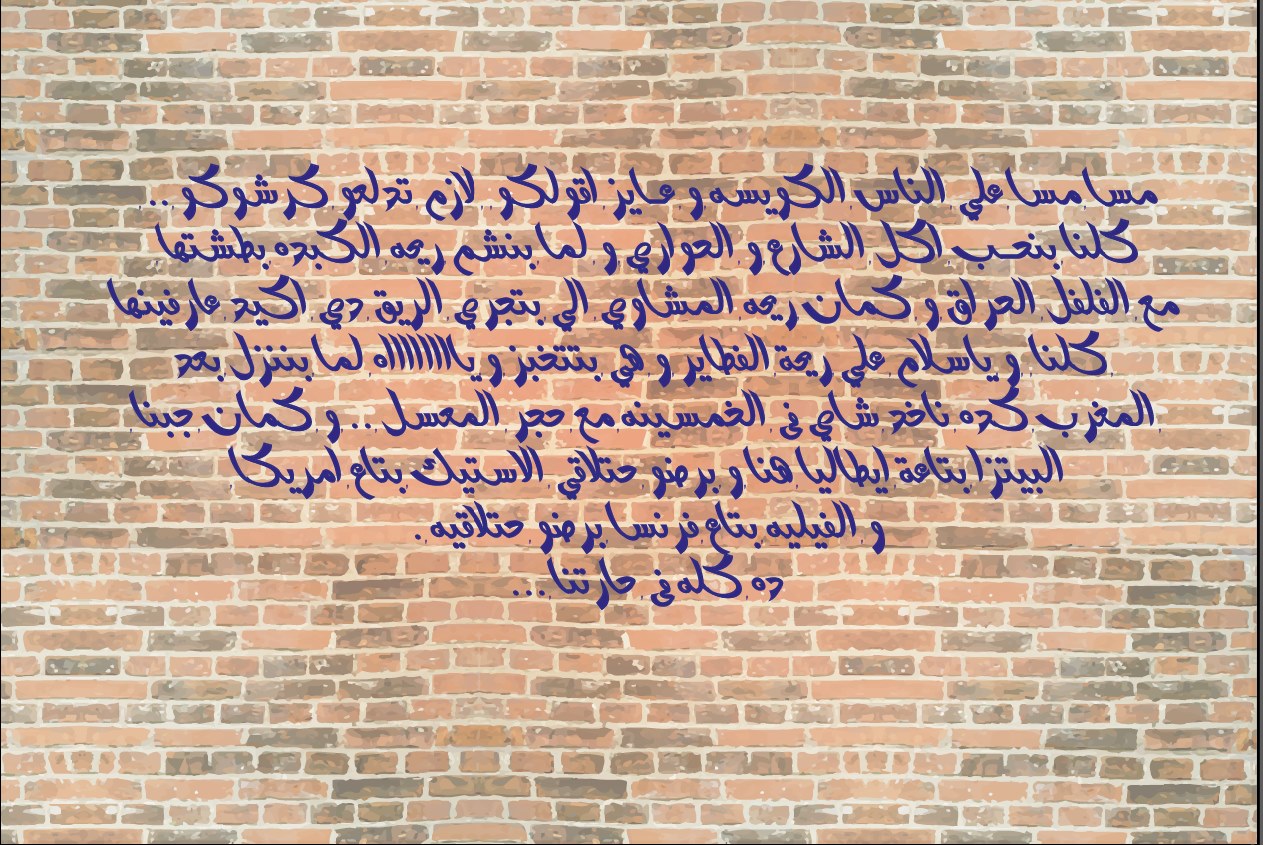 مسا مسا علي الناس الكويسه و عايز اقولكو لازم تدلعو كرشوكو ..
كلنا بنحب اكل الشارع و الحواري و لما بنشم ريحه الكبده بطشتها
مع الفلفل الحراق و كمان ريحه المشاوي الي بتجري الريق دي اكيد عارفينها
كلنا و ياسلام علي ريحة الفطاير و هي بتتخبز و يااااااااه لما بننزل بعد
المغرب كده ناخد شاي فى الخمسينه مع حجر المعسل .. و كمان جبنا
البيتزا بتاعة إيطاليا هنا و برضو حتلاقي الاستيك بتاع امريكا
و الفيليه بتاع فرنسا برضو حتلاقيه .
ده كله فى حارتنا ...